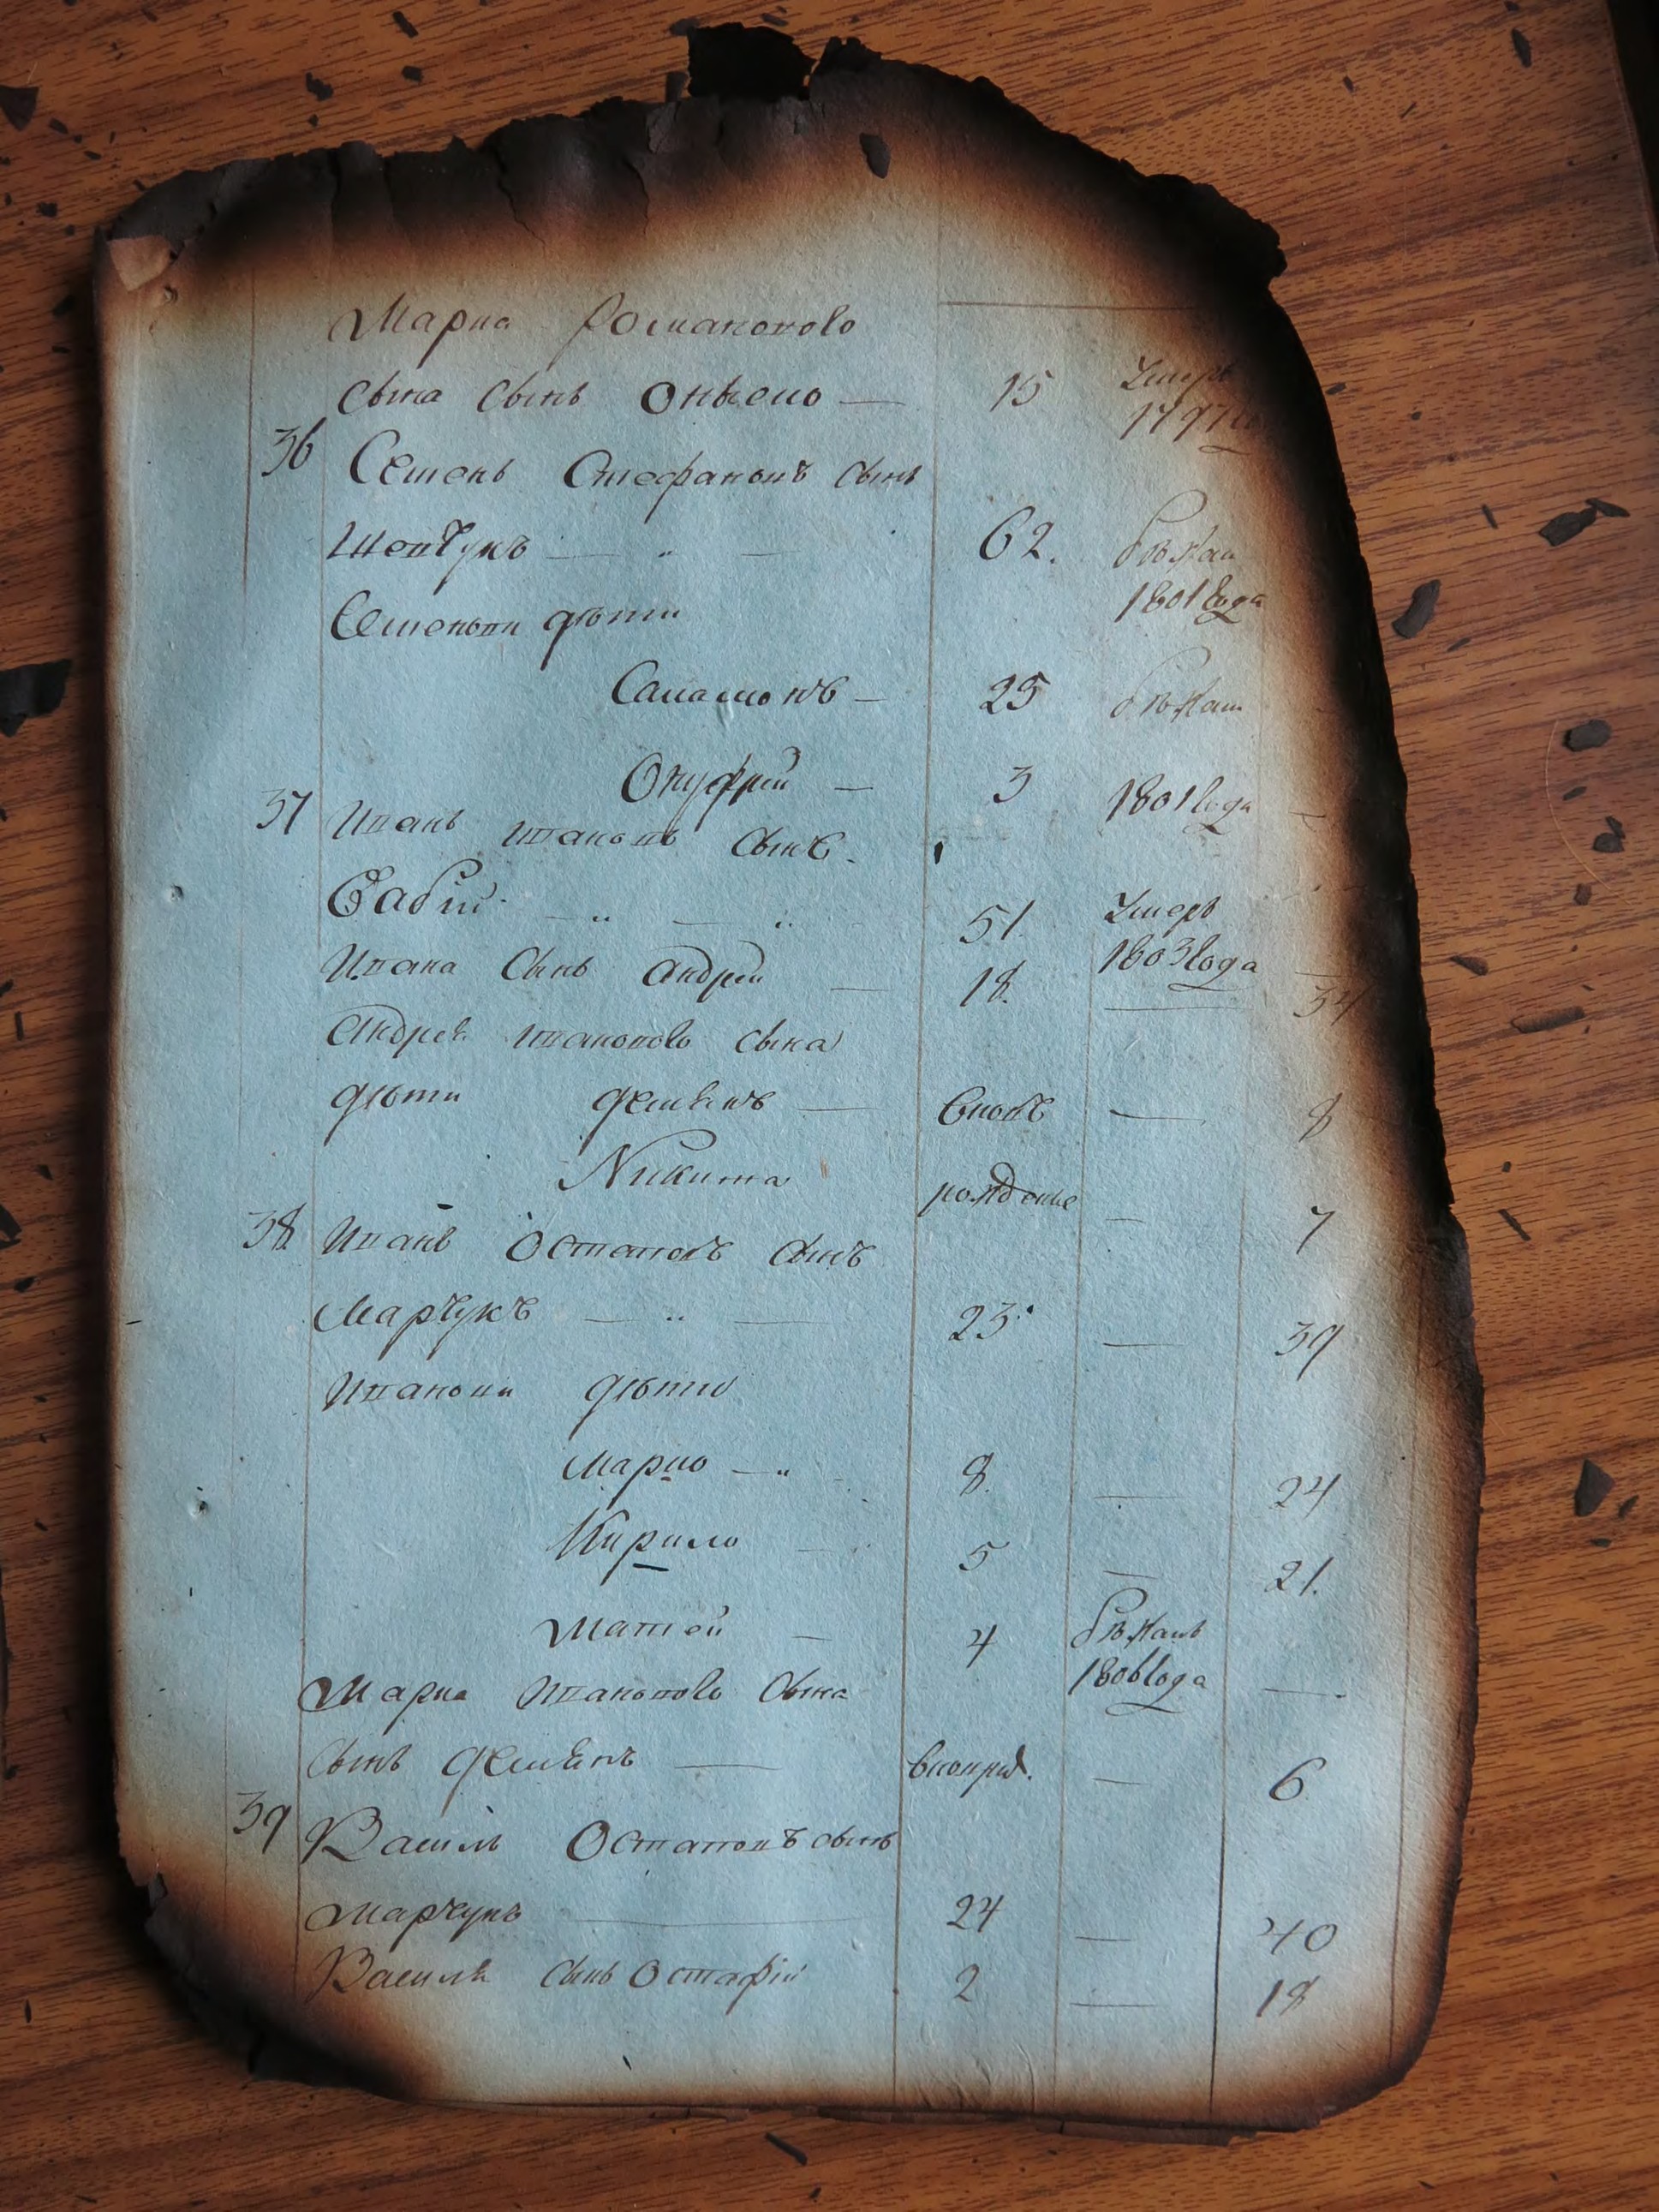 Марка Романового
сына сынъ 15 Умеръ
1797
36 Семенъ Стефановъ сынъ
Шевчукъ — „ — 62. бѣжал
1801 года
Семеновы дѣти
Саламонъ — 25 бѣжали
Онуфрий — 3 1801 года
37 Иванъ Ивановъ сынъ.
Бабій — „ — „ 51. Умеръ
1803 года
Ивана сынъ Андрей — 18. — 34
Андрея Ивановаго сына
дѣти Демянъ — вновь — 8
Никита рожденые — 7
38 Иванъ Остаповъ сынъ
Марчукъ — „ — 23. — 39
Ивановы дѣти
Марко — „ 8. — 24
Кирило — 5 — 21.
Матвей — 4 бѣжалъ
1806 года —
Марка Иванового сына
сынъ Демянъ — вновь рож. — 6
39 Василь Остаповъ сынъ
Марчукъ — 24 — 40
Василя сынъ Остафій 2 — 18